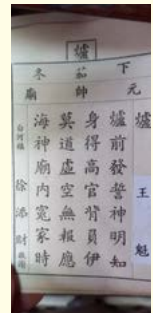 爐
下茄冬
元帥廟
爐 王魁
爐前發誓神明知
身得高官背員伊
莫道虛空無報應
海神廟內冤家時
徐添財